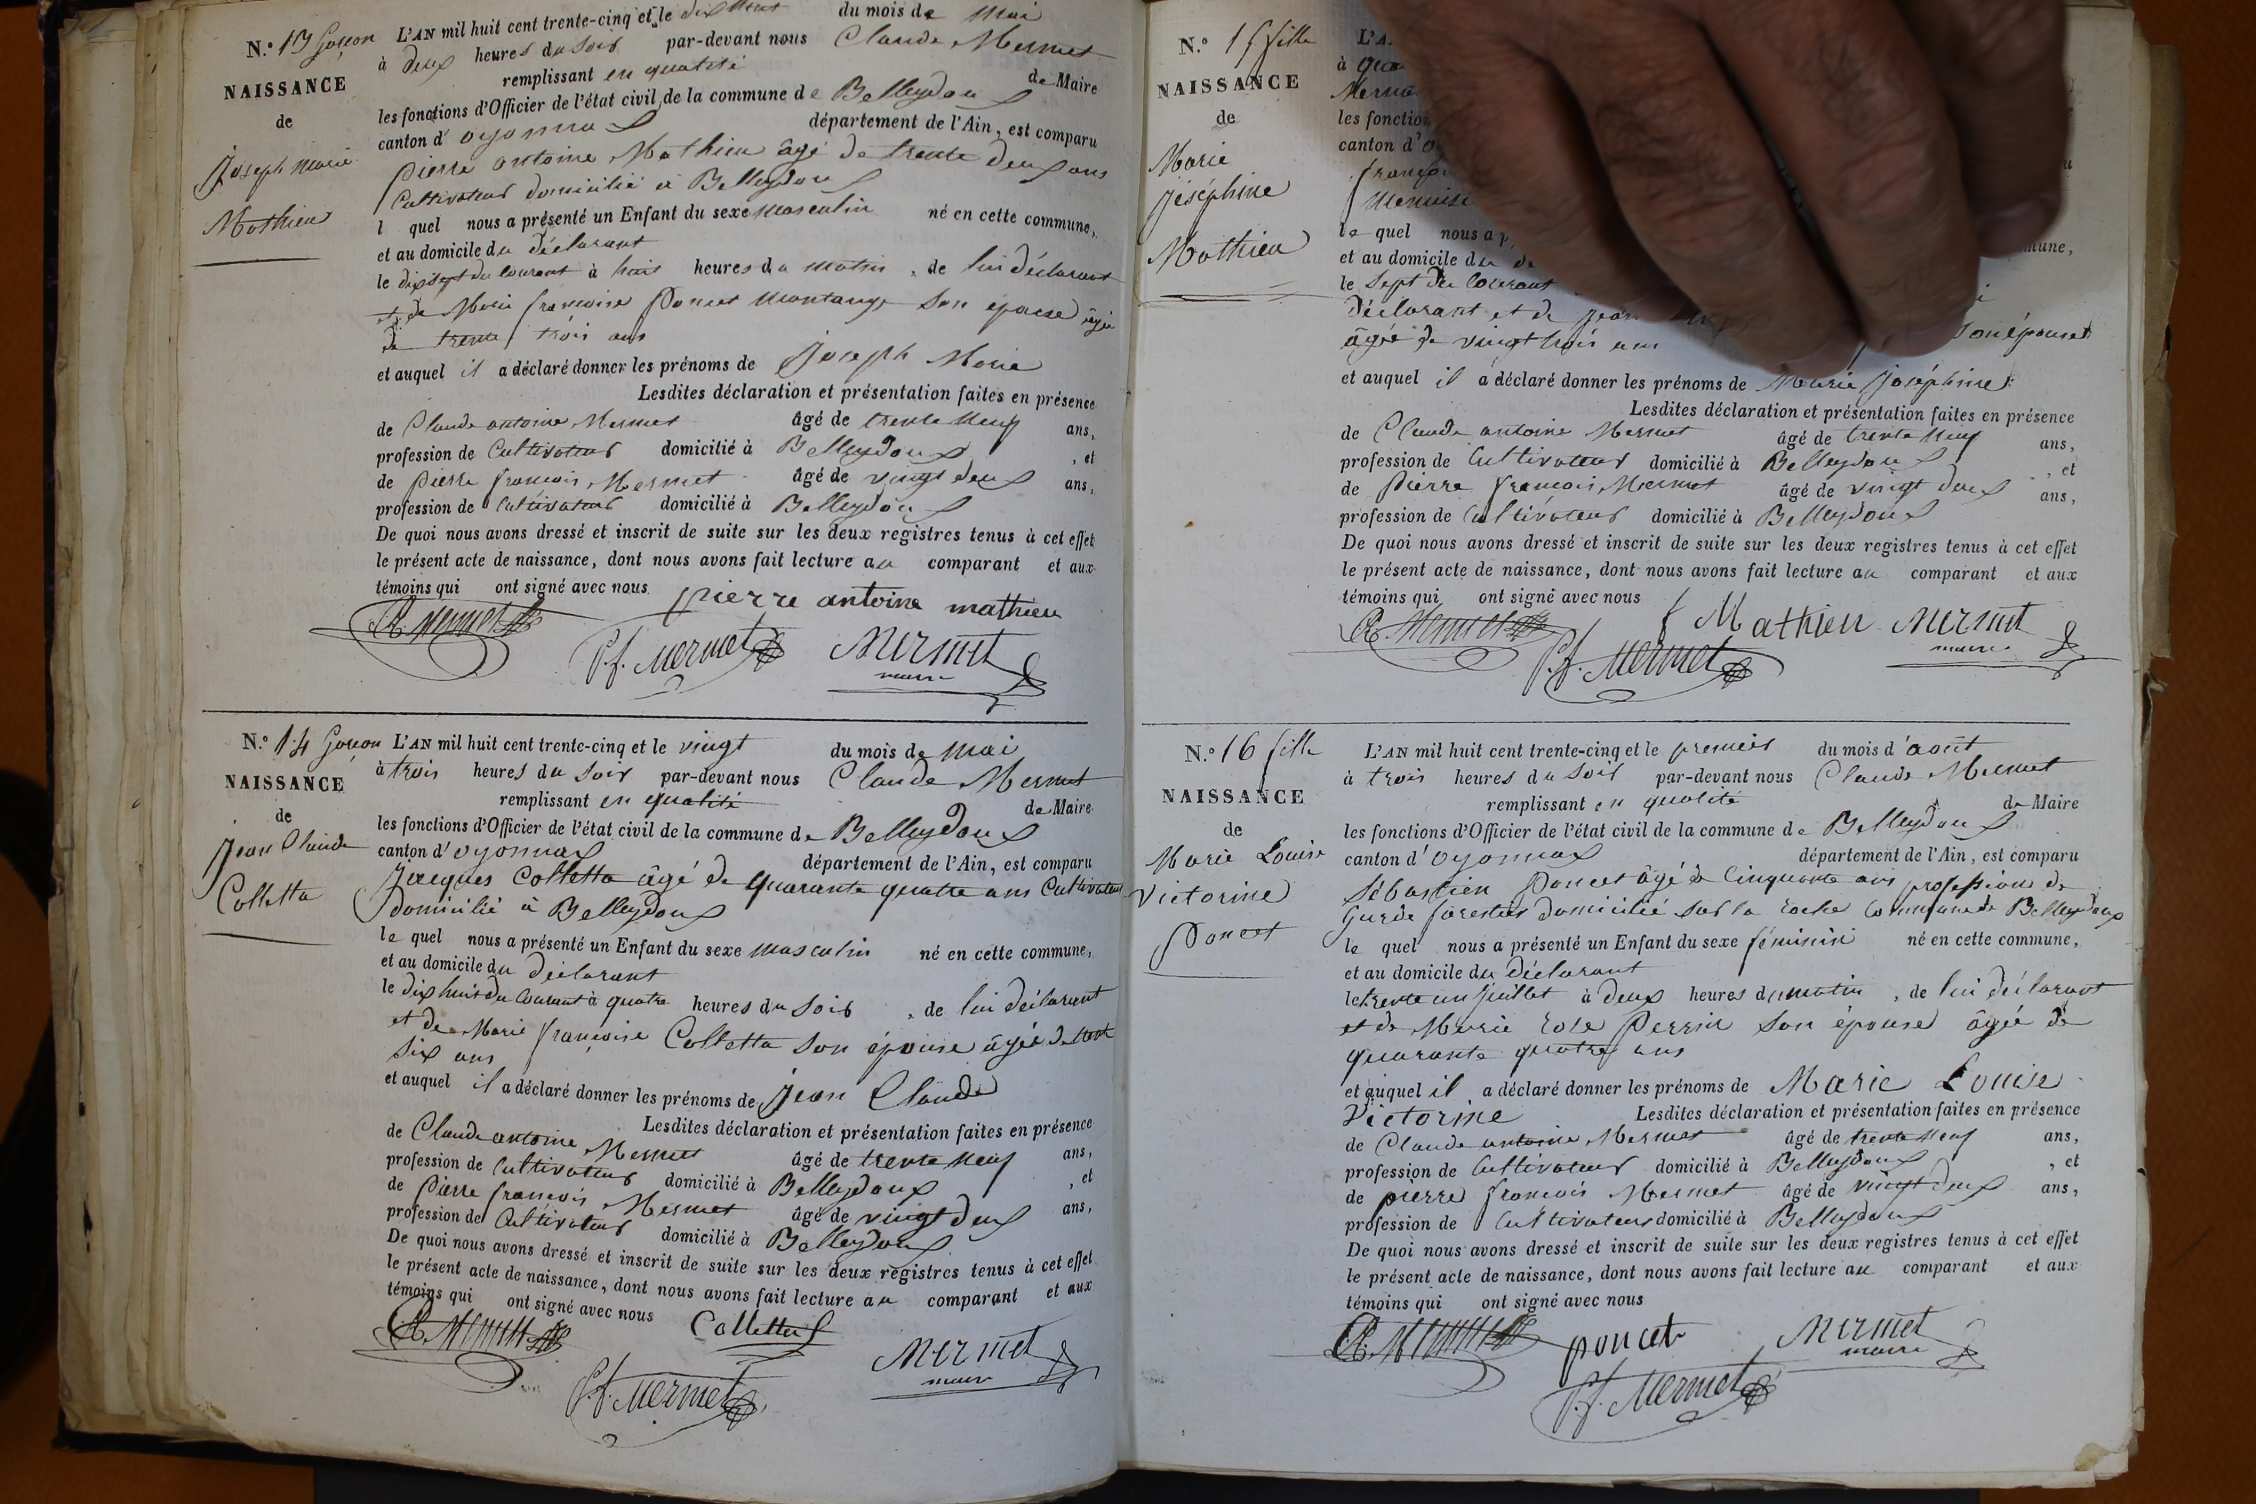 N.° 13 Garçon
NAISSANCE
de
Joseph Marie
Mathieu
L'AN mil huit cent trente-cinq et le dix neuf du mois de Mai
à deux heures du soir par-devant nous Claude Mermet
remplissant en qualité de Maire
les fonctions d'Officier de l'état civil de la commune de Belleydoux
canton d'oyonnax département de l'Ain, est comparu
pierre antoine Mathieu âgé de trente deux ans
Cultivateur domicilié à Belleydoux
l quel nous a présenté un Enfant du sexe masculin né en cette commune,
et au domicile du déclarant
le dixsept du courant à huit heures du matin, de lui déclarant
et de Marie françoise Poncet montange son épouse âgée
de trente trois ans
et auquel il a déclaré donner les prénoms de Joseph Marie
Lesdites déclaration et présentation faites en présence
de Claude antoine Mermet âgé de trente neuf ans,
profession de Cultivateur domicilié à Belleydoux, et
de pierre françois Mermet âgé de vingt deux ans,
profession de Cultivateur domicilié à Belleydoux
De quoi nous avons dressé et inscrit de suite sur les deux registres tenus à cet effet
le présent acte de naissance, dont nous avons fait lecture au comparant et aux
témoins qui ont signé avec nous
pierre antoine mathieu
Mermet
P.f. Mermet
Mermet
maire
N.° 14 Garçon
NAISSANCE
de
Jean Claude
Colletta
L'AN mil huit cent trente-cinq et le vingt du mois de mai
à trois heures du soir par-devant nous Claude Mermet
remplissant en qualité de Maire
les fonctions d'Officier de l'état civil de la commune de Belleydoux
canton d'oyonnax département de l'Ain, est comparu
Jacques Colletta âgé de quarante quatre ans Cultivateur
domicilié à Belleydoux
le quel nous a présenté un Enfant du sexe masculin né en cette commune,
et au domicile du déclarant
le dix huit du Courant à quatre heures du soir, de lui déclarant
et de Marie françoise Colletta son épouse âgée de trente
six ans
et auquel il a déclaré donner les prénoms de Jean Claude
Lesdites déclaration et présentation faites en présence
de Claude antoine Mermet âgé de trente neuf ans,
profession de Cultivateur domicilié à Belleydoux, et
de pierre françois Mermet âgé de vingt deux ans,
profession de Cultivateur domicilié à Belleydoux
De quoi nous avons dressé et inscrit de suite sur les deux registres tenus à cet effet
le présent acte de naissance, dont nous avons fait lecture au comparant et aux
témoins qui ont signé avec nous
Colletta
Mermet
P.f. Mermet
Mermet
maire
N.° 15 fille
NAISSANCE
de
Marie
Joséphine
Mathieu
L'A
à
les fonction
canton d'o
le quel nous a
et au domicile du mmune,
le sept du Courant
déclarant et de
âgée de vingt trois ans son épouse
et auquel il a déclaré donner les prénoms de Marie Joséphine
Lesdites déclaration et présentation faites en présence
de Claude antoine Mermet âgé de trente neuf ans,
profession de Cultivateur domicilié à Belleydoux, et
de pierre françois Mermet âgé de vingt deux ans,
profession de Cultivateur domicilié à Belleydoux
De quoi nous avons dressé et inscrit de suite sur les deux registres tenus à cet effet
le présent acte de naissance, dont nous avons fait lecture au comparant et aux
témoins qui ont signé avec nous
f Mathieu Mermet
maire
Mermet
P.f. Mermet
N.° 16 fille
NAISSANCE
de
Marie Louise
Victorine
Poncet
L'AN mil huit cent trente-cinq et le premier du mois d'août
à trois heures du soir par-devant nous Claude Mermet
remplissant en qualité de Maire
les fonctions d'Officier de l'état civil de la commune de Belleydoux
canton d'oyonnax département de l'Ain, est comparu
Sébastien Poncet âgé de Cinquante ans profession de
Garde forestier domicilié sur la roche Commune de Belleydoux
le quel nous a présenté un Enfant du sexe féminin né en cette commune,
et au domicile du déclarant
le trente un juillet à deux heures du matin, de lui déclarant
et de Marie rose Perrin son épouse âgée de
quarante quatre ans
et auquel il a déclaré donner les prénoms de Marie Louise
Victorine Lesdites déclaration et présentation faites en présence
de Claude antoine Mermet âgé de trente neuf ans,
profession de Cultivateur domicilié à Belleydoux, et
de pierre françois Mermet âgé de vingt deux ans,
profession de Cultivateur domicilié à Belleydoux
De quoi nous avons dressé et inscrit de suite sur les deux registres tenus à cet effet
le présent acte de naissance, dont nous avons fait lecture au comparant et aux
témoins qui ont signé avec nous
Mermet
poncet
Mermet
maire
P.f. Mermet